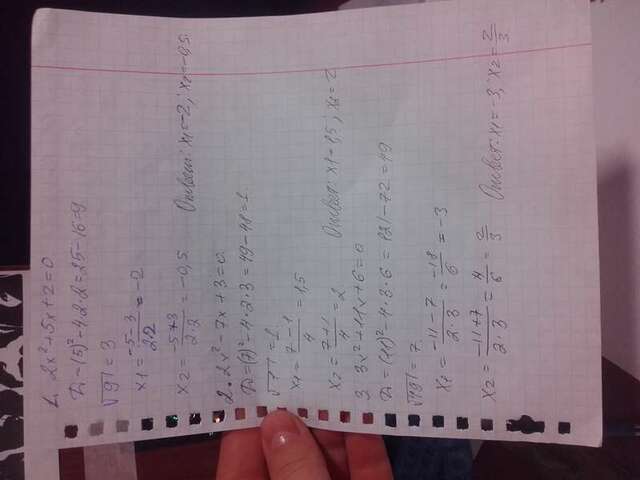 1. 2x²+5x+2=0
D=(5)²-4·2·2=25-16=9
√9=3
x1=\frac{-5-3}{2·2}=-2
x2=\frac{-5+3}{2·2}=-0,5 Ответ: x1=-2; x2=-0,5
2. 2x²-7x+3=0
D=(7)²-4·2·3=49-48=1
√1=1
x1=\frac{7-1}{4}=1,5
x2=\frac{7+1}{4}=2 Ответ: x1=1,5; x2=2
3. 3x²+11x+6=0
D=(11)²-4·3·6=121-72=49
√49=7
x1=\frac{-11-7}{2·3}=\frac{-18}{6}=-3
x2=\frac{-11+7}{2·3}=\frac{4}{6}=\frac{2}{3} Ответ: x1=-3; x2=\frac{2}{3}